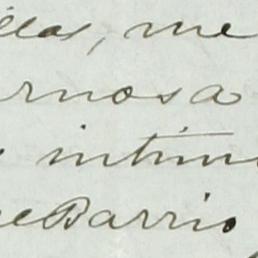 llas, me
rnos a
intim
e Barrio